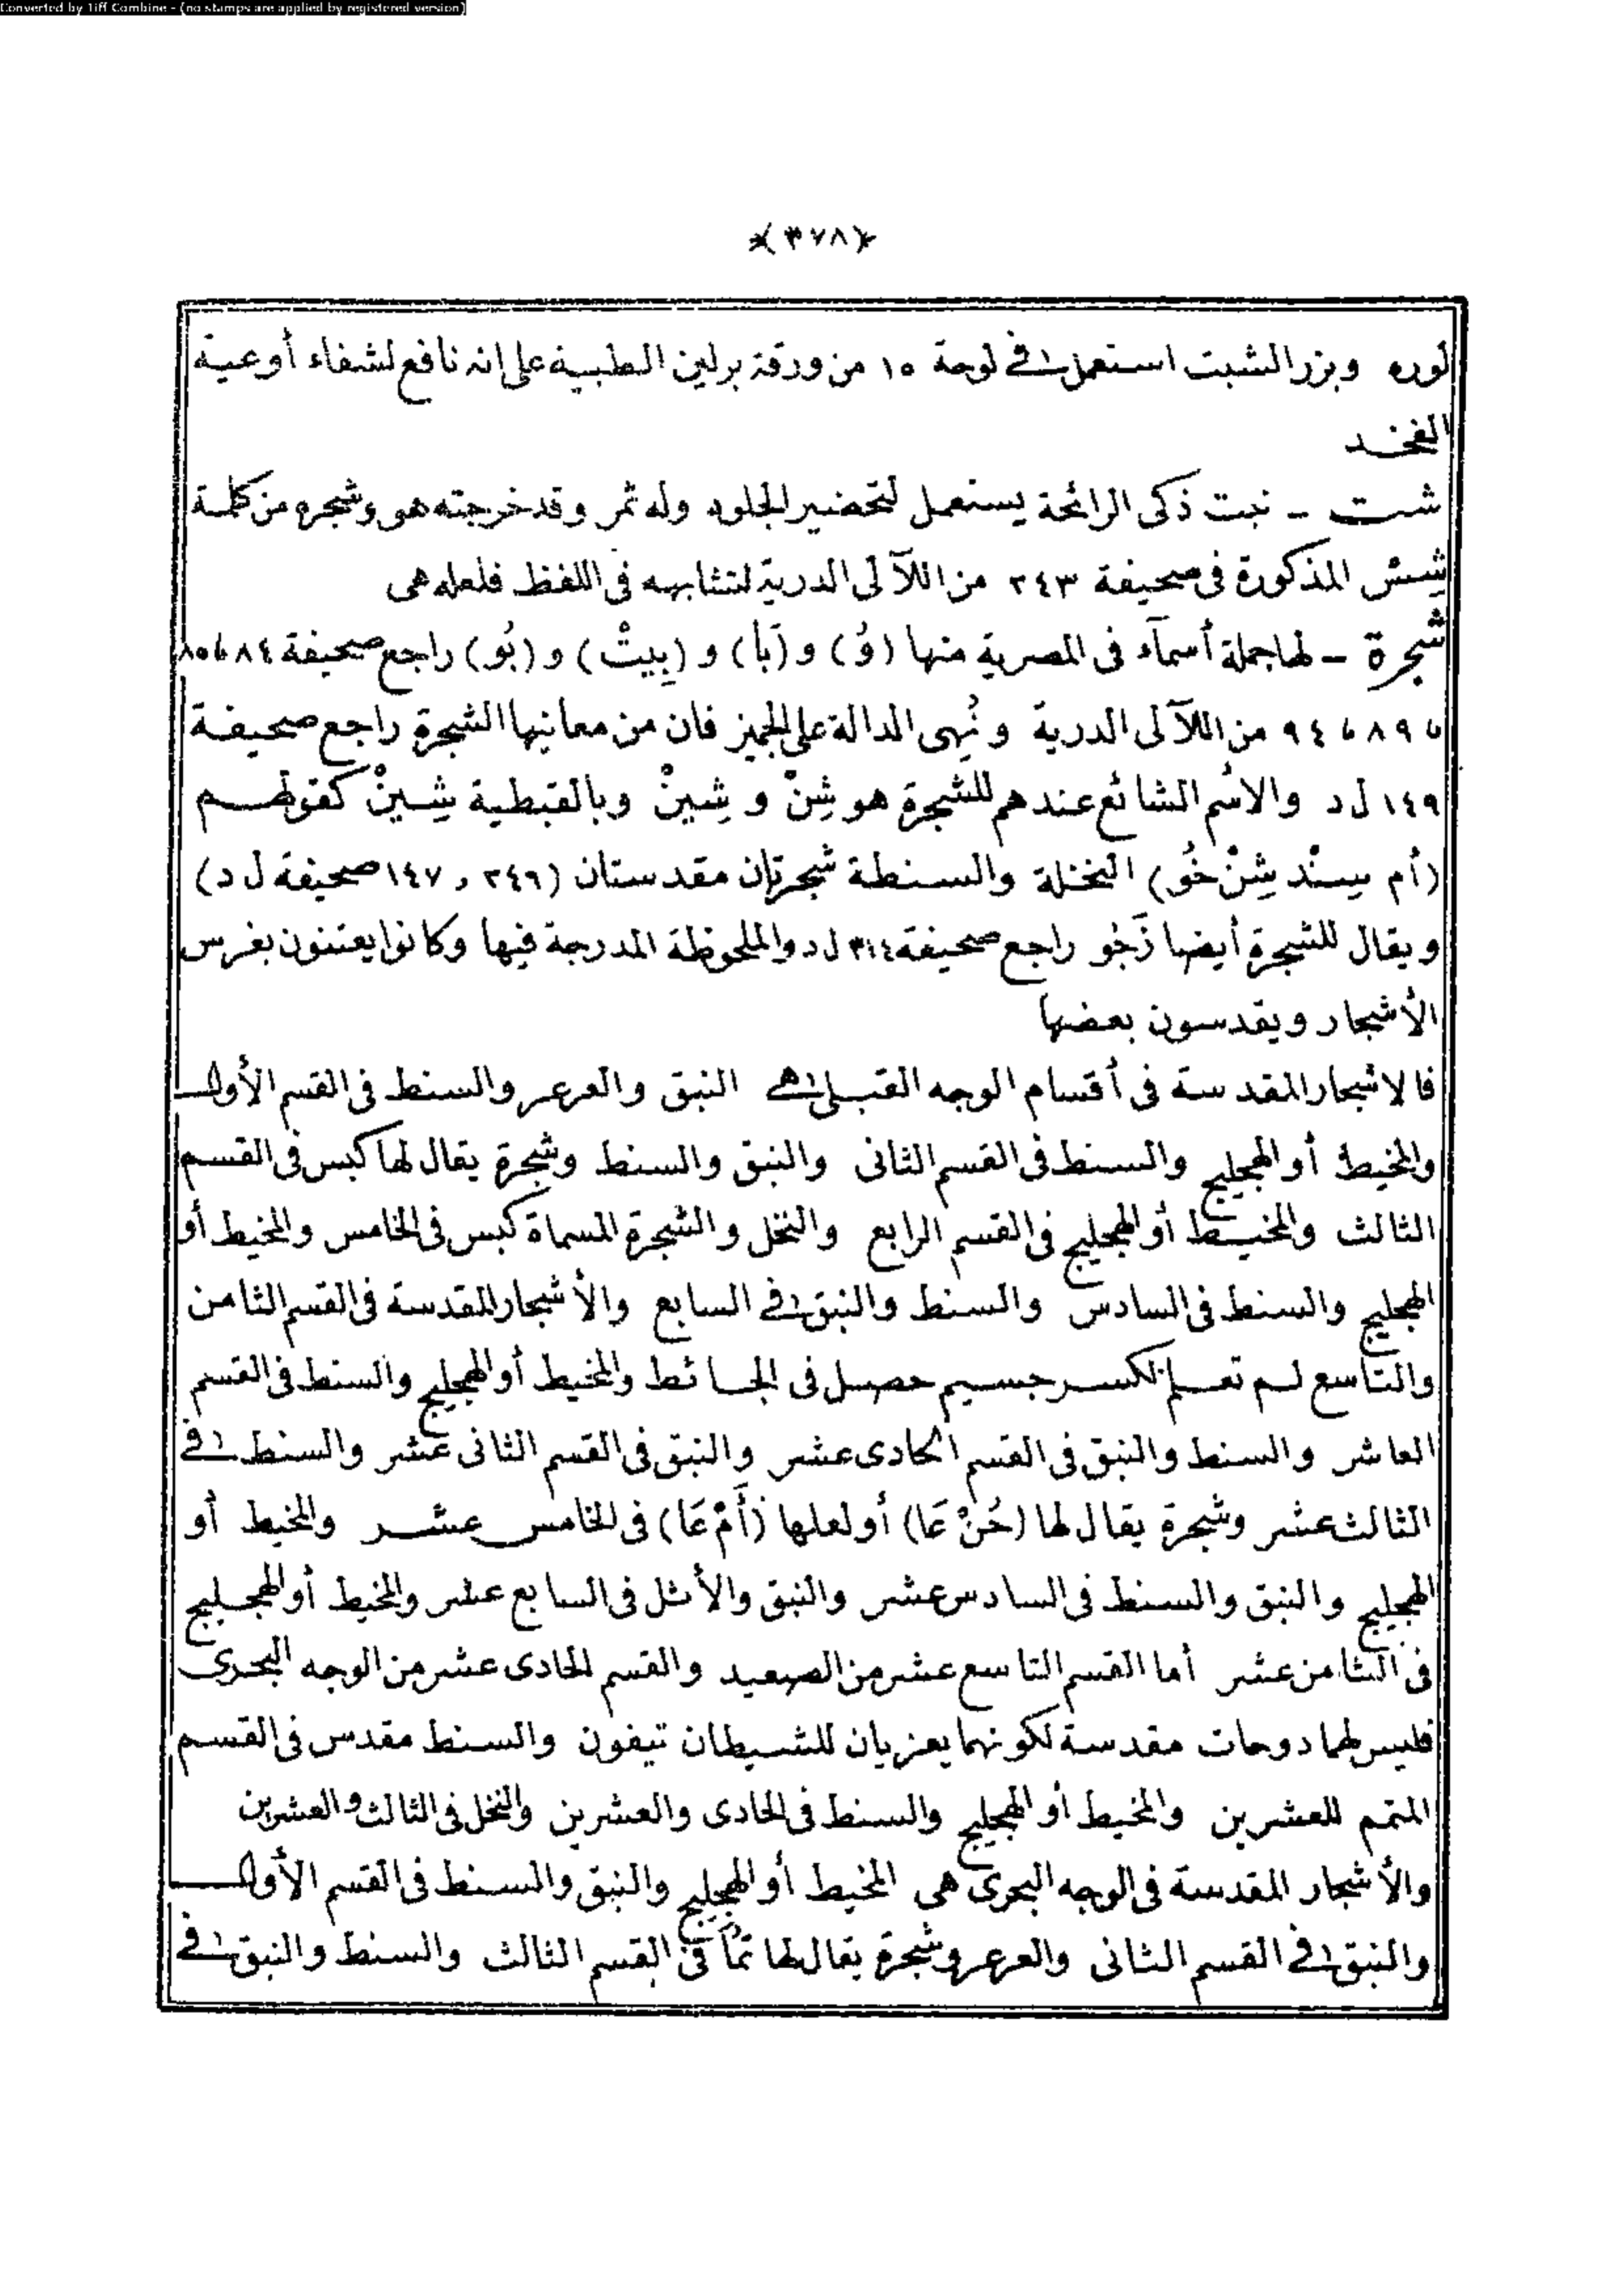 Converted by Tiff Combine - (no stamps are applied by registered version)
*(٣٧٨)*
لوره وبزر الشبت استعمل فى لوحة ١٥ من ورقة برلين الطبية على انه نافع لشفاء أوعية
الفخد
شت - نبت ذكى الرائحة يستعمل لتحضير الجلود وله ثمر وقد خرجته هو وشجره من كلمة
شِسْ المذكورة فى صحيفة ٢٤٣ من اللآلى الدرية لتشابهه فى اللفظ فلعله هى
شجرة - لها جملة أسمآء فى المصرية منها (وُ) و (بَا) و (بِيتْ) و (بُو) راجع صحيفة ٨٤ و ٨٥
و ٨٩ و ٩٤ من اللآلى الدرية ونُهى الدالة على الجميز فان من معانيها الشجرة راجع صحيفة
١٤٩ ل د والاسم الشائع عندهم للشجرة هو شِنْ و شِينْ وبالقبطية شِينْ كقولهم
(أم سِنْد شِنْ خُو) النخلة والسنطة شجرتان مقدستان (٢٤٩ و ١٤٧ صحيفة ل د)
ويقال للشجرة أيضا زَخُو راجع صحيفة ٣١٤ ل د والملحوظة المدرجة فيها وكانوا يعتنون بغرس
الأشجار ويقدسون بعضها
فالاشجار المقدسة فى أقسام الوجه القبلى هى النبق والعرعر والسنط فى القسم الأول
والمخيط أو الهجليج والسنط فى القسم الثانى والنبق والسنط وشجرة يقال لها كبس فى القسم
الثالث والمخيط أو الهجليج فى القسم الرابع والنخل والشجرة المسماة كبس فى الخامس والمخيط أو
الهجليج والسنط فى السادس والسنط والنبق فى السابع والأشجار المقدسة فى القسم الثامن
والتاسع لم تعلم لكسر جسيم حصل فى الحائط والمخيط أو الهجليج والسنط فى القسم
العاشر والسنط والنبق فى القسم الحادى عشر والنبق فى القسم الثانى عشر والسنط فى
الثالث عشر وشجرة يقال لها (حُنْ عَا) أو لعلها (أَمْ عَا) فى الخامس عشر والمخيط أو
الهجليج والنبق والسنط فى السادس عشر والنبق والأثل فى السابع عشر والمخيط أو الهجليج
فى الثامن عشر أما القسم التاسع عشر من الصعيد والقسم الحادى عشر من الوجه البحرى
فليس لهما دوحات مقدسة لكونهما يعزيان للشيطان تيفون والسنط مقدس فى القسم
المتمم للعشرين والمخيط أو الهجليج والسنط فى الحادى والعشرين والنخل فى الثالث والعشرين
والأشجار المقدسة فى الوجه البحرى هى المخيط أو الهجليج والنبق والسنط فى القسم الأول
والنبق فى القسم الثانى والعرعر وشجرة يقال لها تمُا فى القسم الثالث والسنط والنبق فى